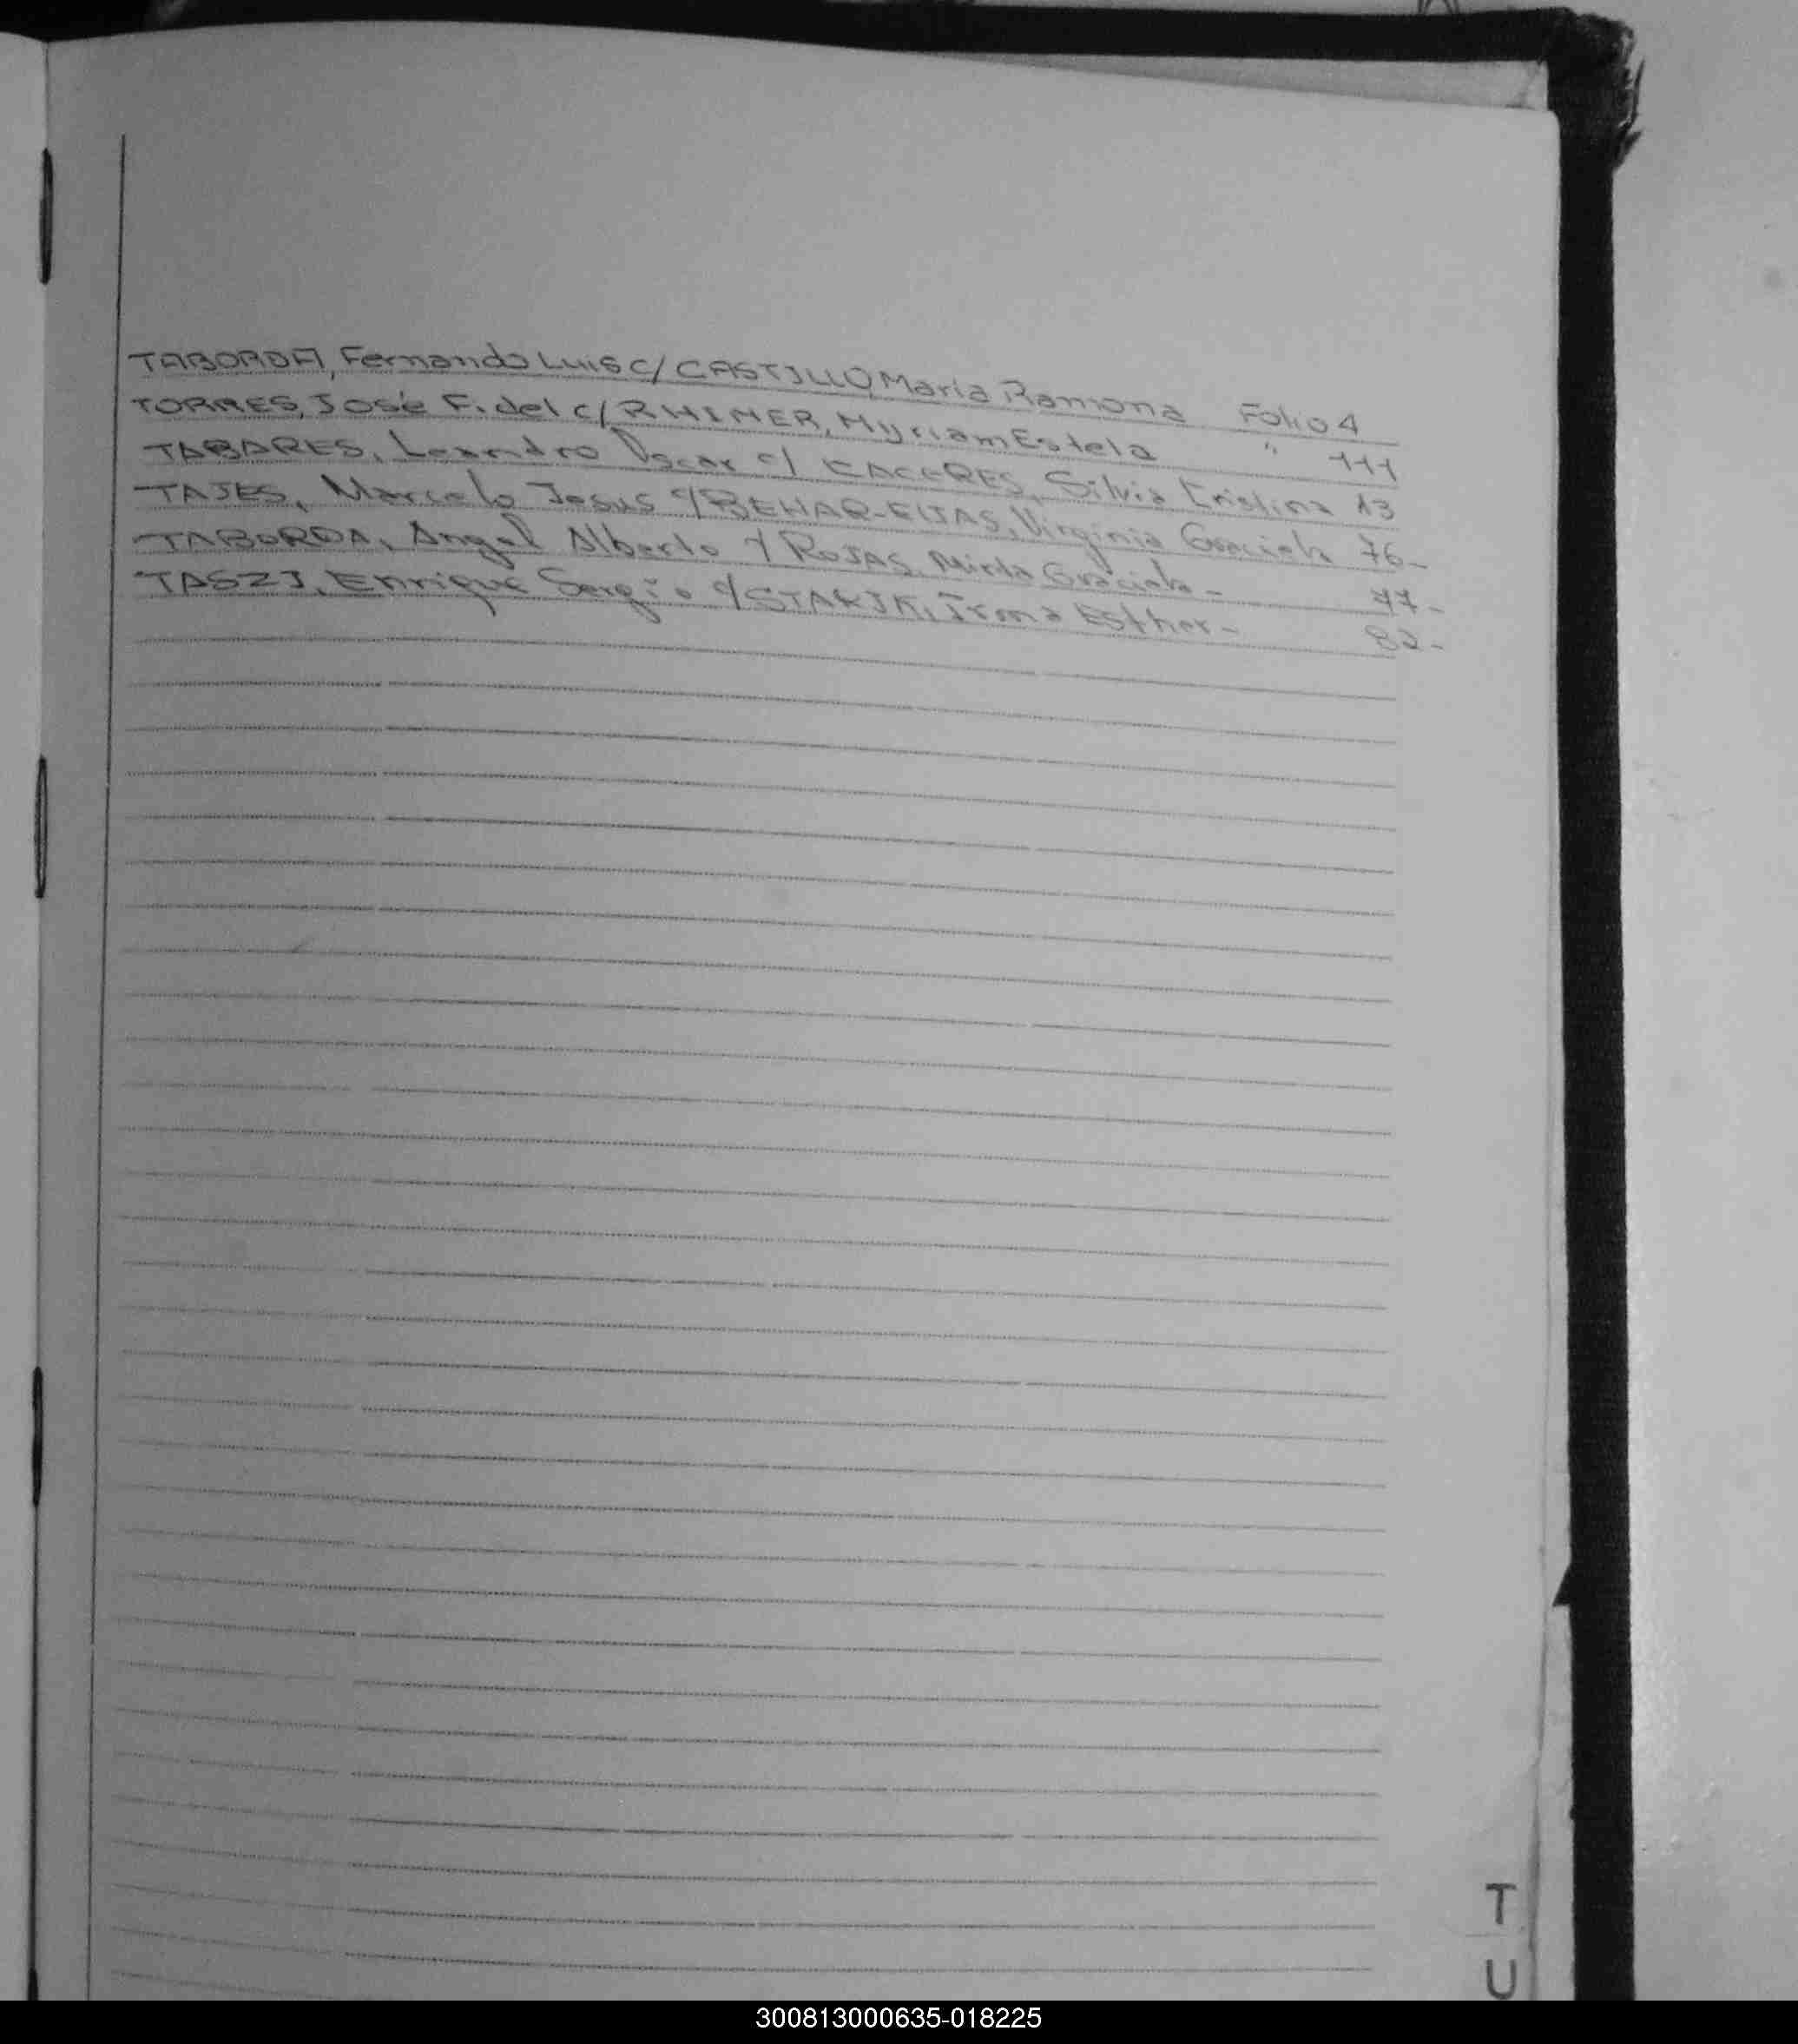 TABORDA, Fernando Luis c/ CASTILLO, María Ramona Folio 4
TORRES, José Fidel c/ RHINER, Myriam Estela " 111
TABARES, Leandro Oscar c/ CACERES, Silvia Cristina 13
TAJES, Marcelo Jesus c/ BEHAR-EIJAS, Virginia Graciela 76-
TABORDA, Angel Alberto c/ ROJAS, Mirta Graciela - 77-
TASZI, Enrique Sergio c/ Irma Esther - 82-
T
U
300813000635-018225